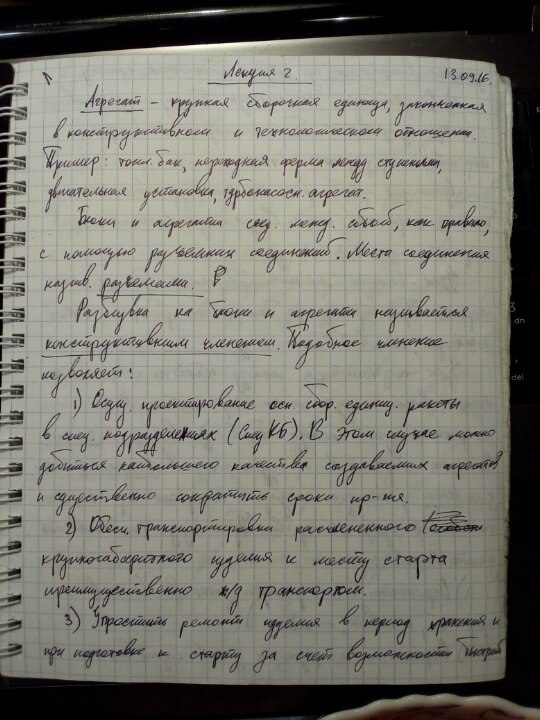 Лекция 2.
13.09.16.
Агрегат – крупная сборочная единица, законченная
в конструктивном и технологическом отношении.
Пример: топл. бак, переходная ферма между ступенями,
двигательная установка, турбонасосн. агрегат.
Блоки и агрегаты соед. между собой, как правило,
с помощью разъемных соединений. Места соединения
назыв. разъемами.
Разбивка на блоки и агрегаты называется
конструктивным членением. Подобное членение
позволяет:
1) Осущ. проектирование осн. сбор. единиц. ракеты
в спец. подразделениях (Спец КБ). В этом случае можно
добиться наибольшего качества создаваемых агрегатов
и существенно сократить сроки пр-тия.
2) Обесп. транспортировки расчлененного
крупногабаритного изделия к месту старта
преимущественно ж/д транспортом.
3) Упростить ремонт изделия в период хранения и
при подготовке к старту за счет возможности быстрой